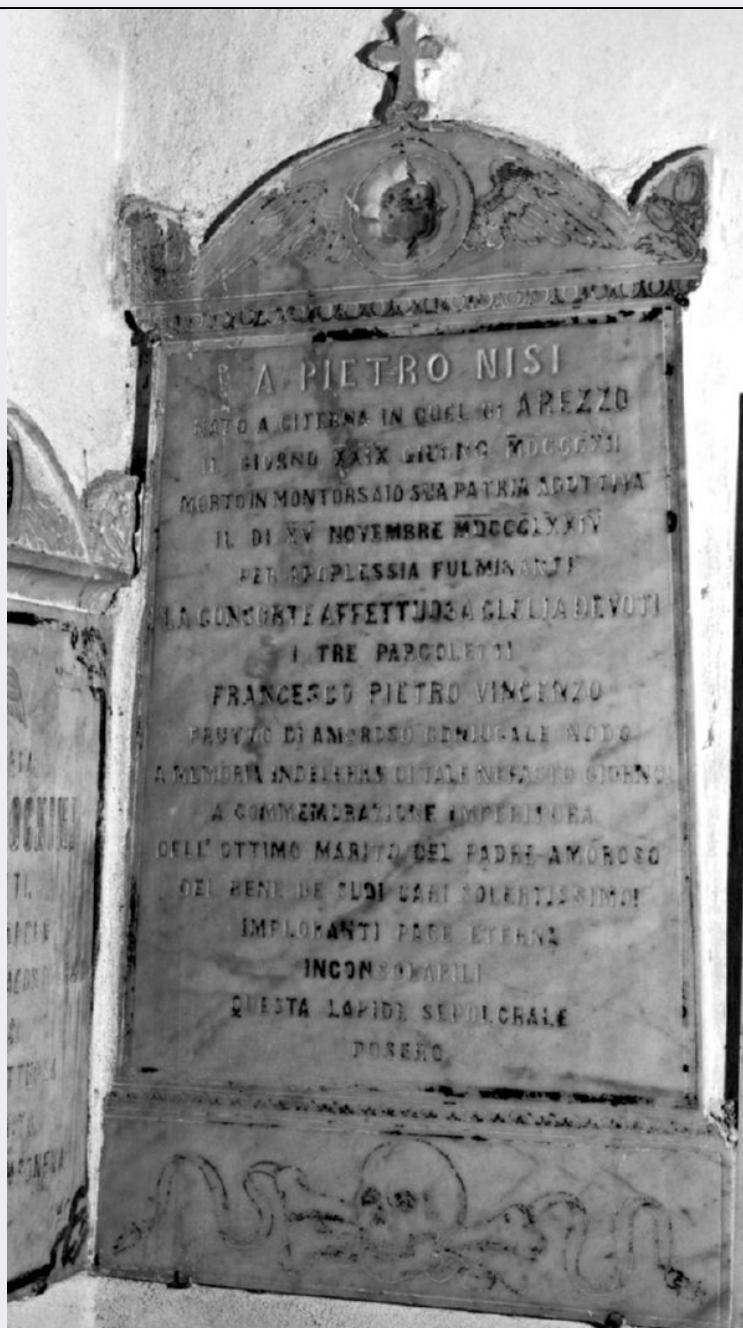 A PIETRO NISI
NATO A CITERNA IN QUEL DI AREZZO
IL GIORNO XXIX GIUGNO
MORTO IN MONTORSAIO SUA PATRIA ADOTTIVA
IL DI XV NOVEMBRE MDCCCLXXIV
PER APOPLESSIA FULMINANTE
LA CONSORTE AFFETTUOSA CLELIA DEVOTI
I TRE PARGOLETTI
FRANCESCO PIETRO VINCENZO
FRUTTO DI AMOROSO CONIUGALE NODO
A MEMORIA DI TALE NEFASTO GIORNO
A COMMEMORAZIONE IMPERITURA
DELL' OTTIMO MARITO DEL PADRE AMOROSO
DEL BENE DE SUOI CARI SOLERTISSIMO!
IMPLORANTI PACE ETERNA
INCONSOLABILI
QUESTA LAPIDE SEPOLCRALE
POSERO